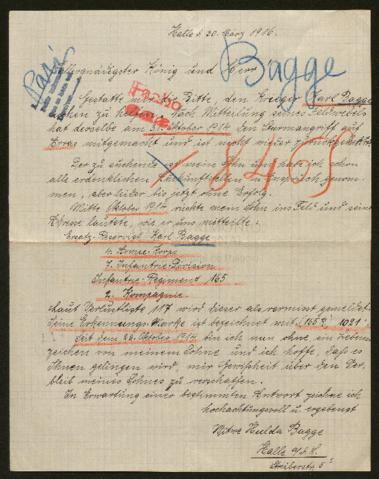 Halle d. 30. März 1916.
Allergnädigster König und Herr
Bagge
Gestatte mir die Bitte, den Krieger Karl Bagge
suchen zu lassen. Nach Mitteilung seines Feldwebels
hat derselbe am Oktober 1914 den Sturmangriff auf
Arras mitgemacht und ist nicht wieder zurückgekehrt.
Der zu suchende ist mein Sohn und habe ich schon
alle erdenklichen in Anspruch genom-
men, aber leider bis jetzt ohne Erfolg.
Mitte Oktober 1914 rückte mein Sohn ins Feld und seine
Adresse lautete, wie er uns mitteilte:
Ersatz-Reservist Karl Bagge
4. Armee-Korps
7. Infanterie-Division
Infanterie-Regiment 165
2. Kompagnie
Laut Verlustliste 117 wird dieser als vermisst gemeldet.
Seine Erkennungs Marke ist bezeichnet mit
Seit dem 26. Oktober 1914 bin ich nun ohne ein Lebens-
zeichen von meinem Sohne und ich hoffe, dass es
Ihnen gelingen wird, mir Gewissheit über den Ver-
bleib meines Sohnes zu verschaffen.
In Erwartung einer bestimmten Antwort zeichne ich
hochachtungsvoll u. ergebenst
Witwe Hulda Bagge
Halle a/d. S.